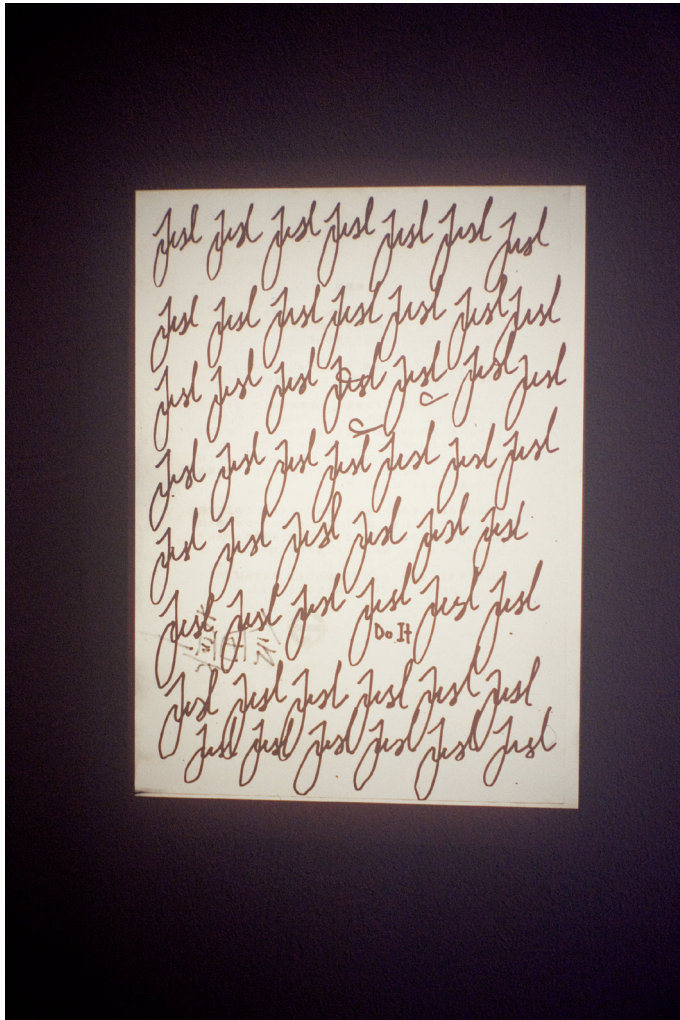 Just Just Just Just Just Just Just
Just Just Just Just Just Just Just
Just Just Just Just Just Just Just
Just Just Just Just Just Just Just
Just Just Just Just Just Just
Just Just Just Just Just Just
Do It
Just Just Just Just Just Just
Just Just Just Just Just Just